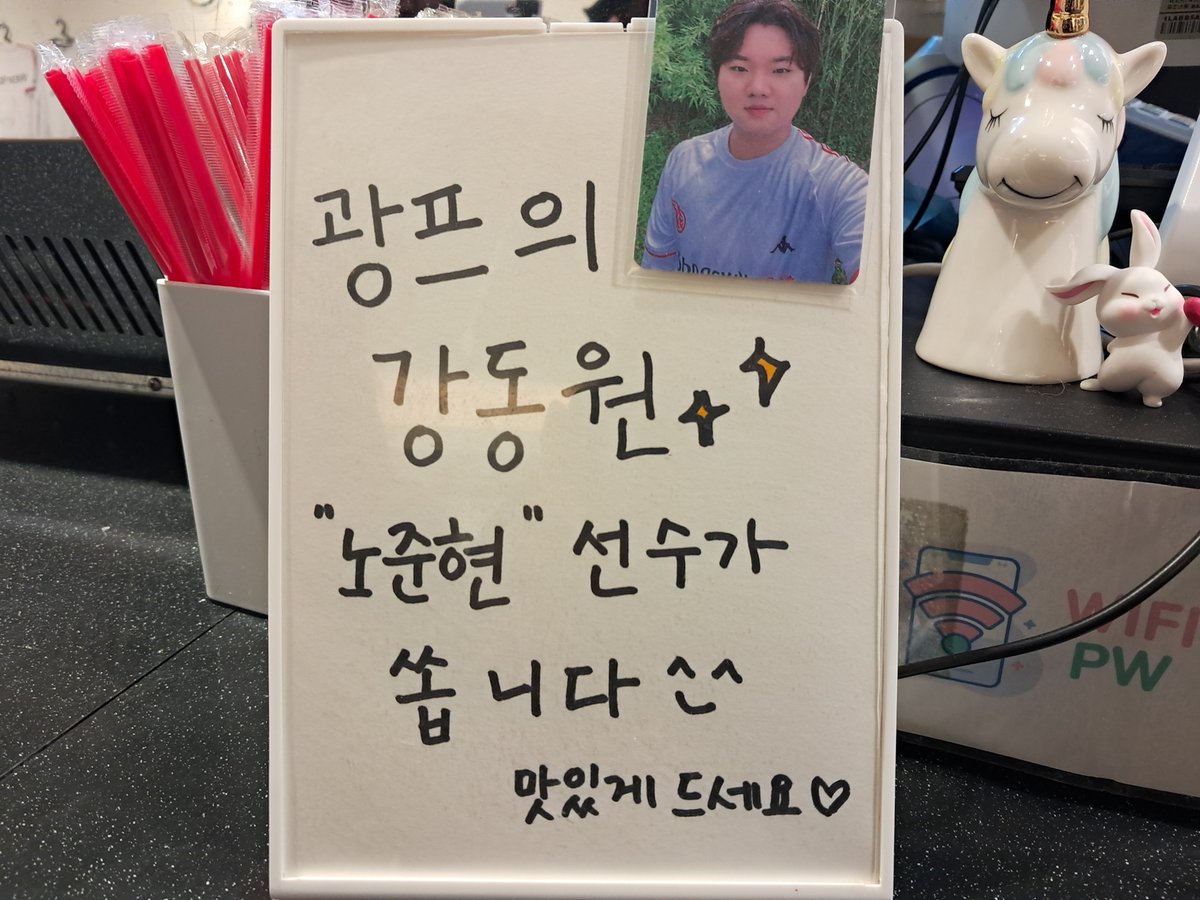 광프의
강동원
"노준현" 선수가
쏩니다 ^^
맛있게 드세요♡
WIFI
PW